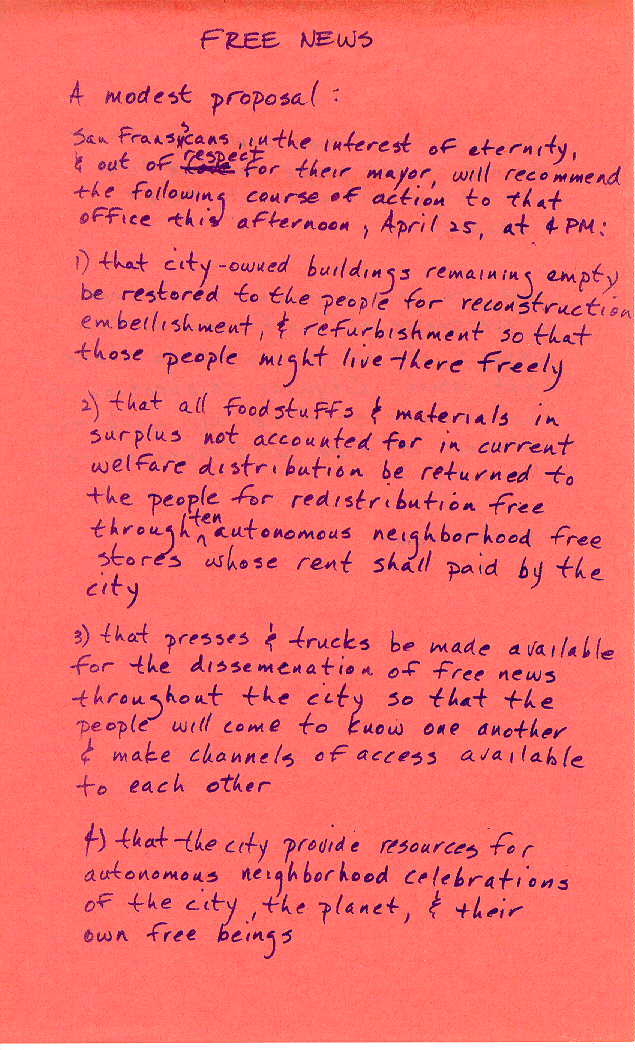 FREE NEWS
A modest proposal:
San Fransiscans, in the interest of eternity,
& out of respect for their mayor, will recommend
the following course of action to that
office this afternoon, April 25, at 4 PM:
1) that city-owned buildings remaining empty
be restored to the people for reconstruction
embellishment, & refurbishment so that
those people might live there freely
2) that all foodstuffs & materials in
surplus not accounted for in current
welfare distribution be returned to
the people for redistribution free
through ten autonomous neighborhood free
stores whose rent shall paid by the
city
3) that presses & trucks be made available
for the dissemenation of free news
throughout the city so that the
people will come to know one another
& make channels of access available
to each other
4) that the city provide resources for
autonomous neighborhood celebrations
of the city, the planet, & their
own free beings